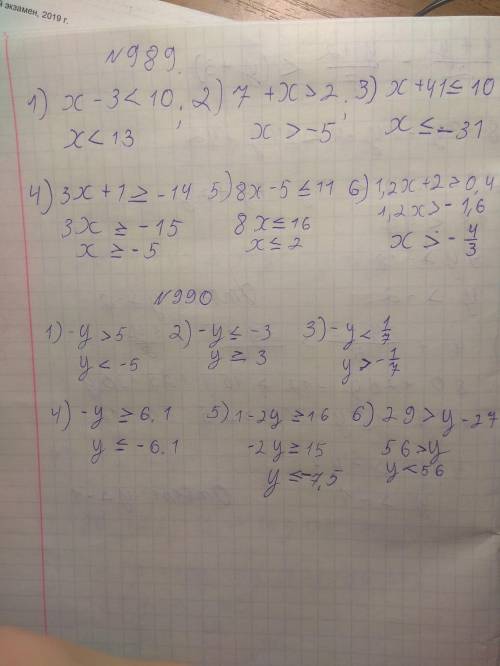 й экзамен, 2019 г.
№989.
1) x - 3 < 10; 2) 7 + x > 2; 3) x + 41 ≤ 10
x < 13 x > -5 x ≤ -31
4) 3x + 1 ≥ -14 5) 8x - 5 ≤ 11 6) 1,2x + 2 > 0,4
3x ≥ -15 8x ≤ 16 1,2x > -1,6
x ≥ -5 x ≤ 2 x > -4/3
№990
1) -y > 5 2) -y ≤ -3 3) -y < 1/7
y < -5 y ≥ 3 y > -1/7
4) -y ≥ 6.1 5) 1 - 2y ≥ 16 6) 29 > y - 27
y ≤ -6.1 -2y ≥ 15 56 > y
y ≤ -7,5 y < 56